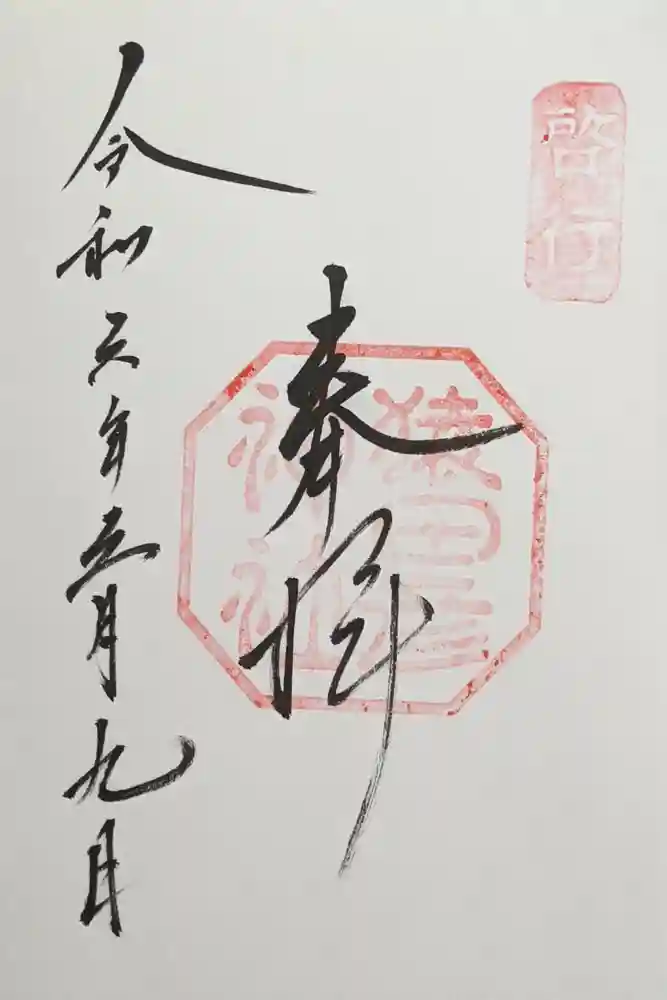 啓行
奉拝
猿田彦
神社
令和六年五月九日